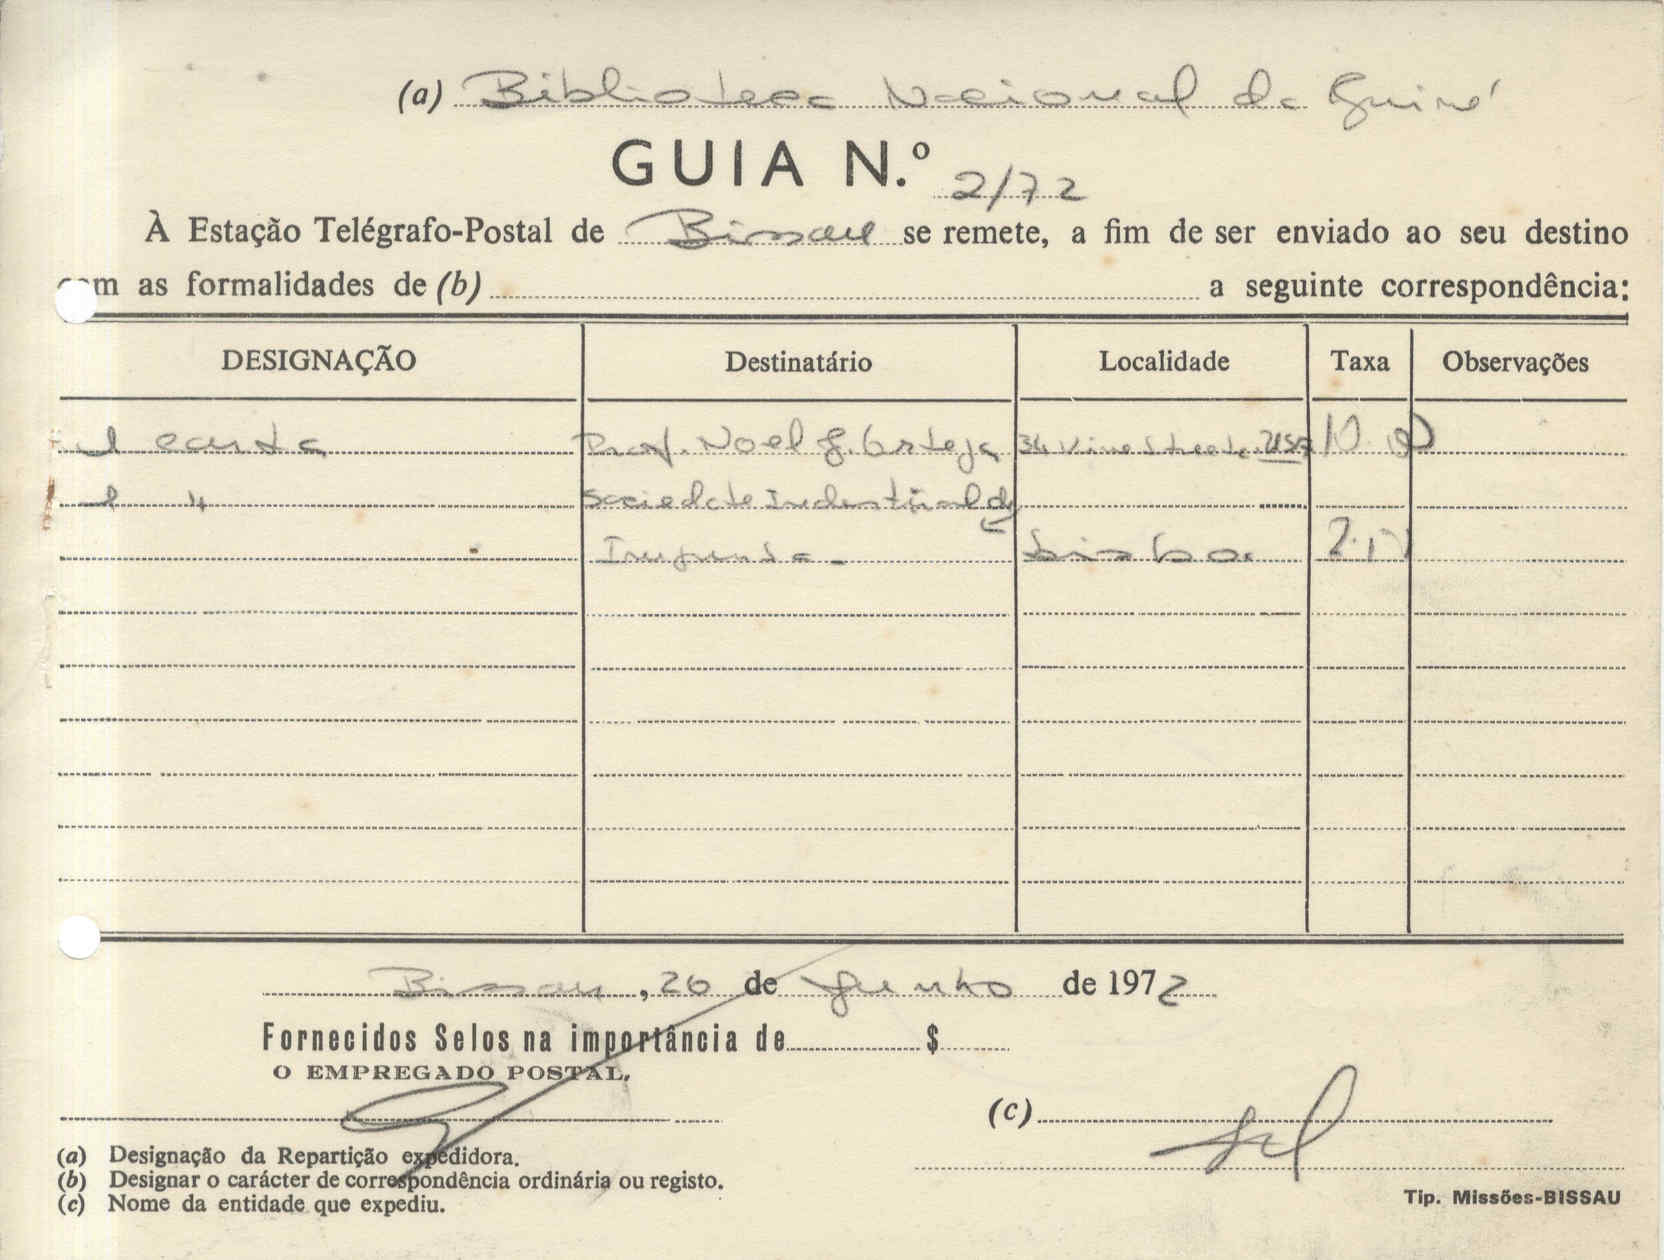 (a) Biblioteca Nacional da Guiné
GUIA N.º 2/72
À Estação Telégrafo-Postal de Bissau se remete, a fim de ser enviado ao seu destino
com as formalidades de (b) a seguinte correspondência:
DESIGNAÇÃO Destinatário Localidade Taxa Observações
1 carta Prof. Noel J. Ortega 34 Vine Street USA 10.00
1 " Sociedade Industrial de
Imprensa - Lisboa
Bissau, 26 de Junho de 1972
Fornecidos Selos na importância de $
O EMPREGADO POSTAL,
(c)
(a) Designação da Repartição expedidora.
(b) Designar o carácter de correspondência ordinária ou registo.
(c) Nome da entidade que expediu.
Tip. Missões-BISSAU